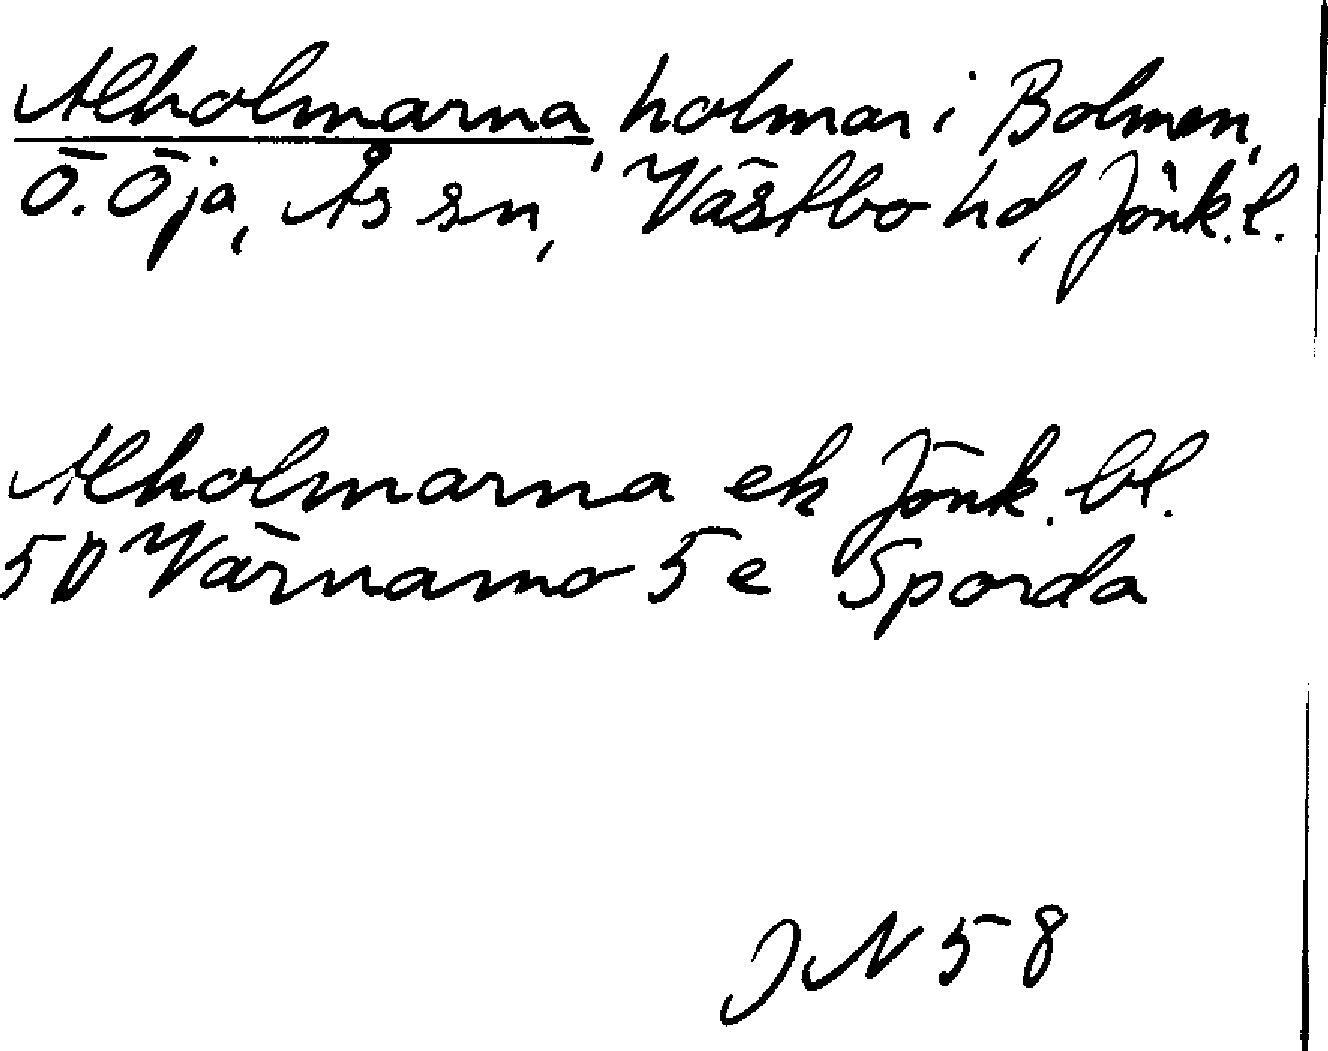 Alholmarna, holmar i Bolmen,
Ö. Öja, Ås sn, Västbo hd, Jönk. l.
Alholmarna ek Jönk. bl.
5D Värnamo 5e Sporda
JN 58